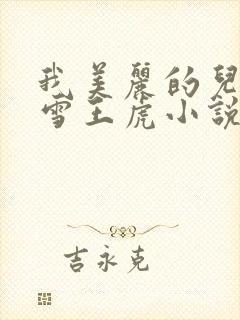 我美麗的兒
雪王虎小說
吉永克